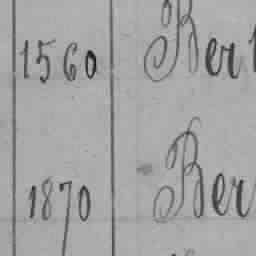 1560 Ber
1870 Ber